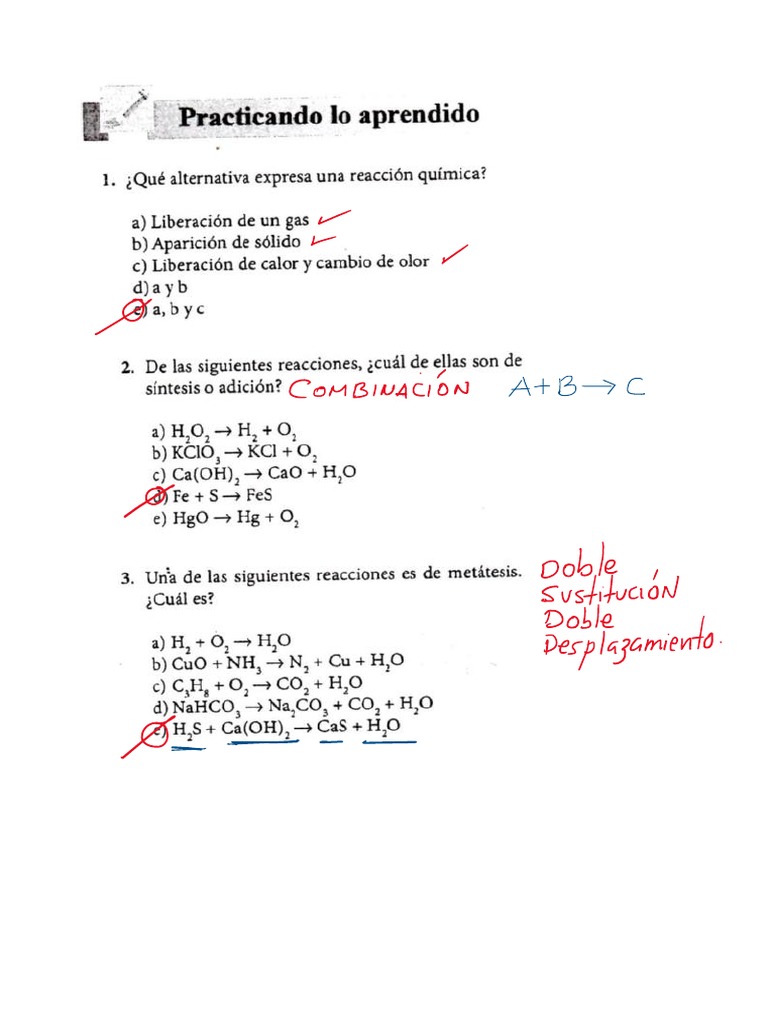 Practicando lo aprendido
1. ¿Qué alternativa expresa una reacción química?
a) Liberación de un gas
b) Aparición de sólido
c) Liberación de calor y cambio de olor
d) a y b
e) a, b y c
2. De las siguientes reacciones, ¿cuál de ellas son de
síntesis o adición? COMBINACIÓN A+B→C
a) H₂O₂ → H₂ + O₂
b) KClO₃ → KCl + O₂
c) Ca(OH)₂ → CaO + H₂O
d) Fe + S → FeS
e) HgO → Hg + O₂
3. Una de las siguientes reacciones es de metátesis.
¿Cuál es?
Doble
SUSTITUCIÓN
Doble
Desplazamiento.
a) H₂ + O₂ → H₂O
b) CuO + NH₃ → N₂ + Cu + H₂O
c) C₃H₈ + O₂ → CO₂ + H₂O
d) NaHCO₃ → Na₂CO₃ + CO₂ + H₂O
e) H₂S + Ca(OH)₂ → CaS + H₂O